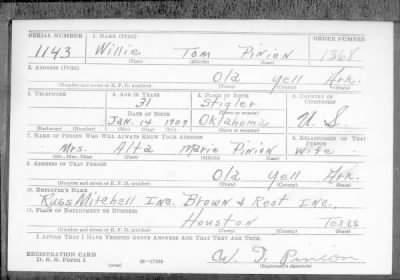 SERIAL NUMBER 1. NAME (Print) ORDER NUMBER
1143 Willie Tom Pinion 1368
(First) (Middle) (Last)
2. ADDRESS (Print)
Ola Yell Ark.
(Number and street or R. F. D. number) (Town) (County) (State)
3. TELEPHONE 4. AGE IN YEARS 5. PLACE OF BIRTH 6. COUNTRY OF CITIZENSHIP
31 Stigler
DATE OF BIRTH (Town or county)
Jan. 14 1909 Oklahoma U. S.
(Exchange) (Number) (Mo.) (Day) (Yr.) (State or country)
7. NAME OF PERSON WHO WILL ALWAYS KNOW YOUR ADDRESS 8. RELATIONSHIP OF THAT PERSON
Mrs. Alta Marie Pinion Wife
(Mr., Mrs., Miss) (First) (Middle) (Last)
9. ADDRESS OF THAT PERSON
Ola Yell Ark.
(Number and street or R. F. D. number) (Town) (County) (State)
10. EMPLOYER'S NAME
Russ Mitchell Inc. Brown & Root Inc.
11. PLACE OF EMPLOYMENT OR BUSINESS
Houston Texas
(Number and street or R. F. D. number) (Town) (County) (State)
I AFFIRM THAT I HAVE VERIFIED ABOVE ANSWERS AND THAT THEY ARE TRUE.
REGISTRATION CARD
D. S. S. Form 1 16—17105 W. T. Pinion
(over) (Registrant's signature)